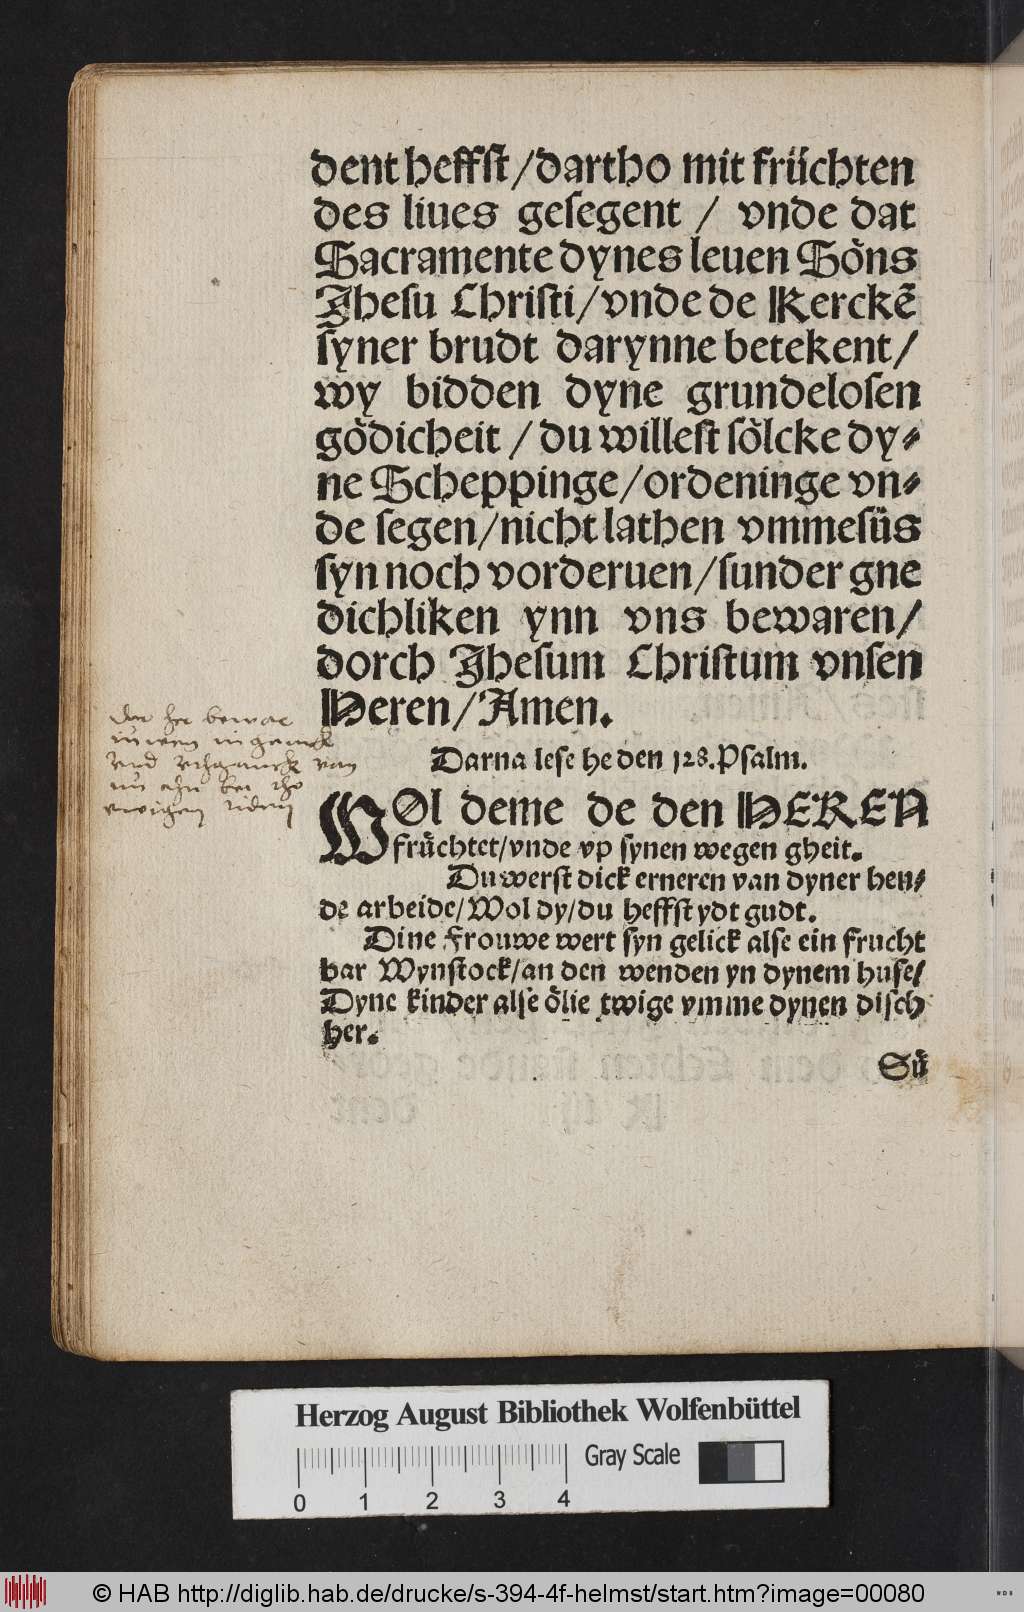 dent heffst/dartho mit früchten
des liues gesegent / vnde dat
Sacramente dynes leuen Söns
Jhesu Christi/vnde de Kerckẽ
syner brudt darynne betekent/
wy bidden dyne grundelosen
gödicheit / du willest sölcke dy-
ne Scheppinge/ordeninge vn-
de segen/nicht lathen vmmesüs
syn noch vorderuen/sunder gne
dichliken ynn vns bewaren/
dorch Jhesum Christum vnsen
Heren/Amen.
Darna lese he den 128.Psalm.
WOl deme de den HEREN
früchtet/vnde vp synen wegen gheit.
Du werst dick erneren van dyner hen-
de arbeide/Wol dy/du heffst ydt gudt.
Dine Frouwe wert syn gelick alse ein frucht
bar Wynstock/an den wenden yn dynem huse/
Dyne kinder alse ölie twige vmme dynen disch
her.
Sü
bewar
van
Herzog August Bibliothek Wolfenbüttel
Gray Scale
0 1 2 3 4
© HAB http://diglib.hab.de/drucke/s-394-4f-helmst/start.htm?image=00080